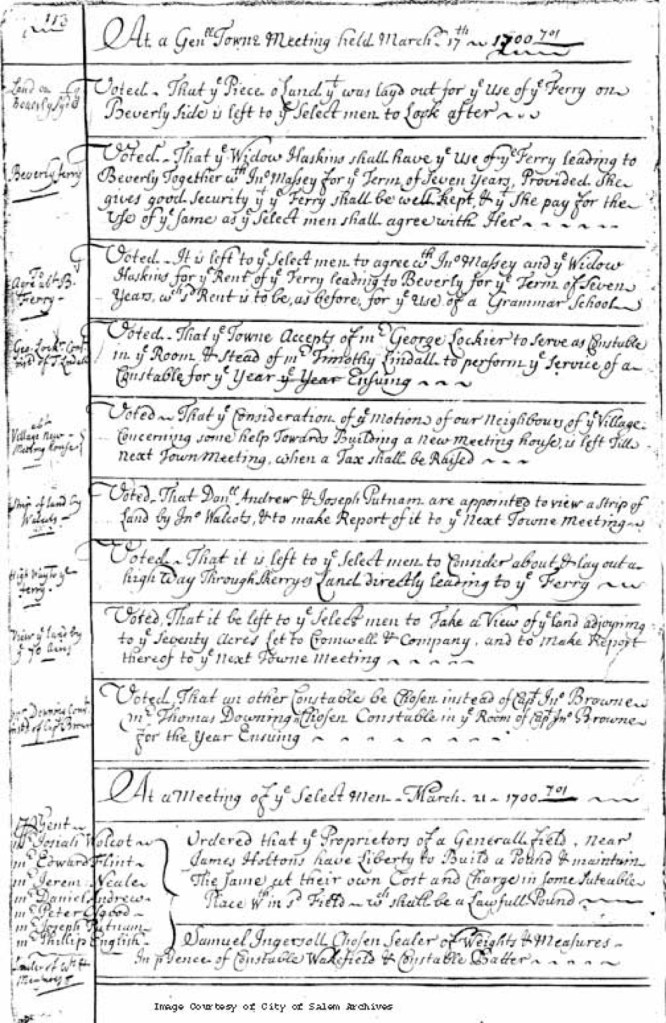 113
At a Genll Towne Meeting held March 17th 1700 701
Land on
Beverly Syde
Voted - That ye Piece o Land yt was layd out for ye Use of ye Ferry on
Beverly Side is left to ye Select men to Look after
Beverly ferry
Voted - That ye Widow Haskins shall have ye Use of ye Ferry leading to
Beverly Together wth Jno Massey for ye Term of Seven Years, Provided She
gives good Security yt ye Ferry shall be well Kept, & yt She pay for the
Use of ye Same as ye Select men shall agree with Her
To
Agree abt B.
Ferry -
Voted - It is left to ye Select men to agree wth Jno Massey and ye Widow
Haskins for ye Rent of ye Ferry leading to Beverly for ye Term of Seven
Years, wch sd Rent is to be, as before, for ye Use of a Grammar School
Geo: Lockr Const
Voted - That ye Towne Accepts of mr George Lockier to serve as Constable
in ye Room & Stead of mr Timothy Lindall to perform ye Service of a
Constable for ye Year ye Year Ensuing
abt
Village New
Meeting house
Voted - That ye Consideration of ye Motion of our Neighbours of ye Village
Concerning some help Towards Building a new Meeting house, is left Till
next Town Meeting, when a Tax shall be Raised
Strip of land by
Walcots
Voted, That Danll Andrew & Joseph Putnam are appointed to view a strip of
Land by Jno Walcots, & to make Report of it to ye Next Towne Meeting
High Way to ye
ferry -
Voted - That it is left to ye Select men to Consider about & lay out a
high Way Through Skerrys Land directly leading to ye Ferry
View ye land by
ye 70 Acres
Voted, That it be left to ye Select men to Take a View of ye land adjoyning
to ye Seventy Acres Let to Cromwell & Company, and to Make Report
thereof to ye Next Towne Meeting
Downing Const
instd of Capt Brown
Voted, That an other Constable be Chosen instead of Capt Jno Browne
mr Thomas Downing Chosen Constable in ye Room of Capt Jno Browne
for the Year Ensuing
At a Meeting of ye Select Men - March 21 - 1700 701
Gent
mr Josiah Wolcot
mr Edward Flint
mr Jerem: Neale
mr Daniel Andrew
mr Peter Osgood
mr Joseph Putnam
mr Phillip English
Ordered that ye Proprietors of a Generall field, near
James Holtons have Liberty to Build a Pound & maintain
The Same at their own Cost and Charge in some Suteable
Place wthin sd Field - wch shall be a Lawfull Pound
Sealer of Wts &
Measures
Samuel Ingersoll Chosen Sealer of Weights & Measures -
In psence of Constable Wakefield & Constable Batter
Image Courtesy of City of Salem Archives